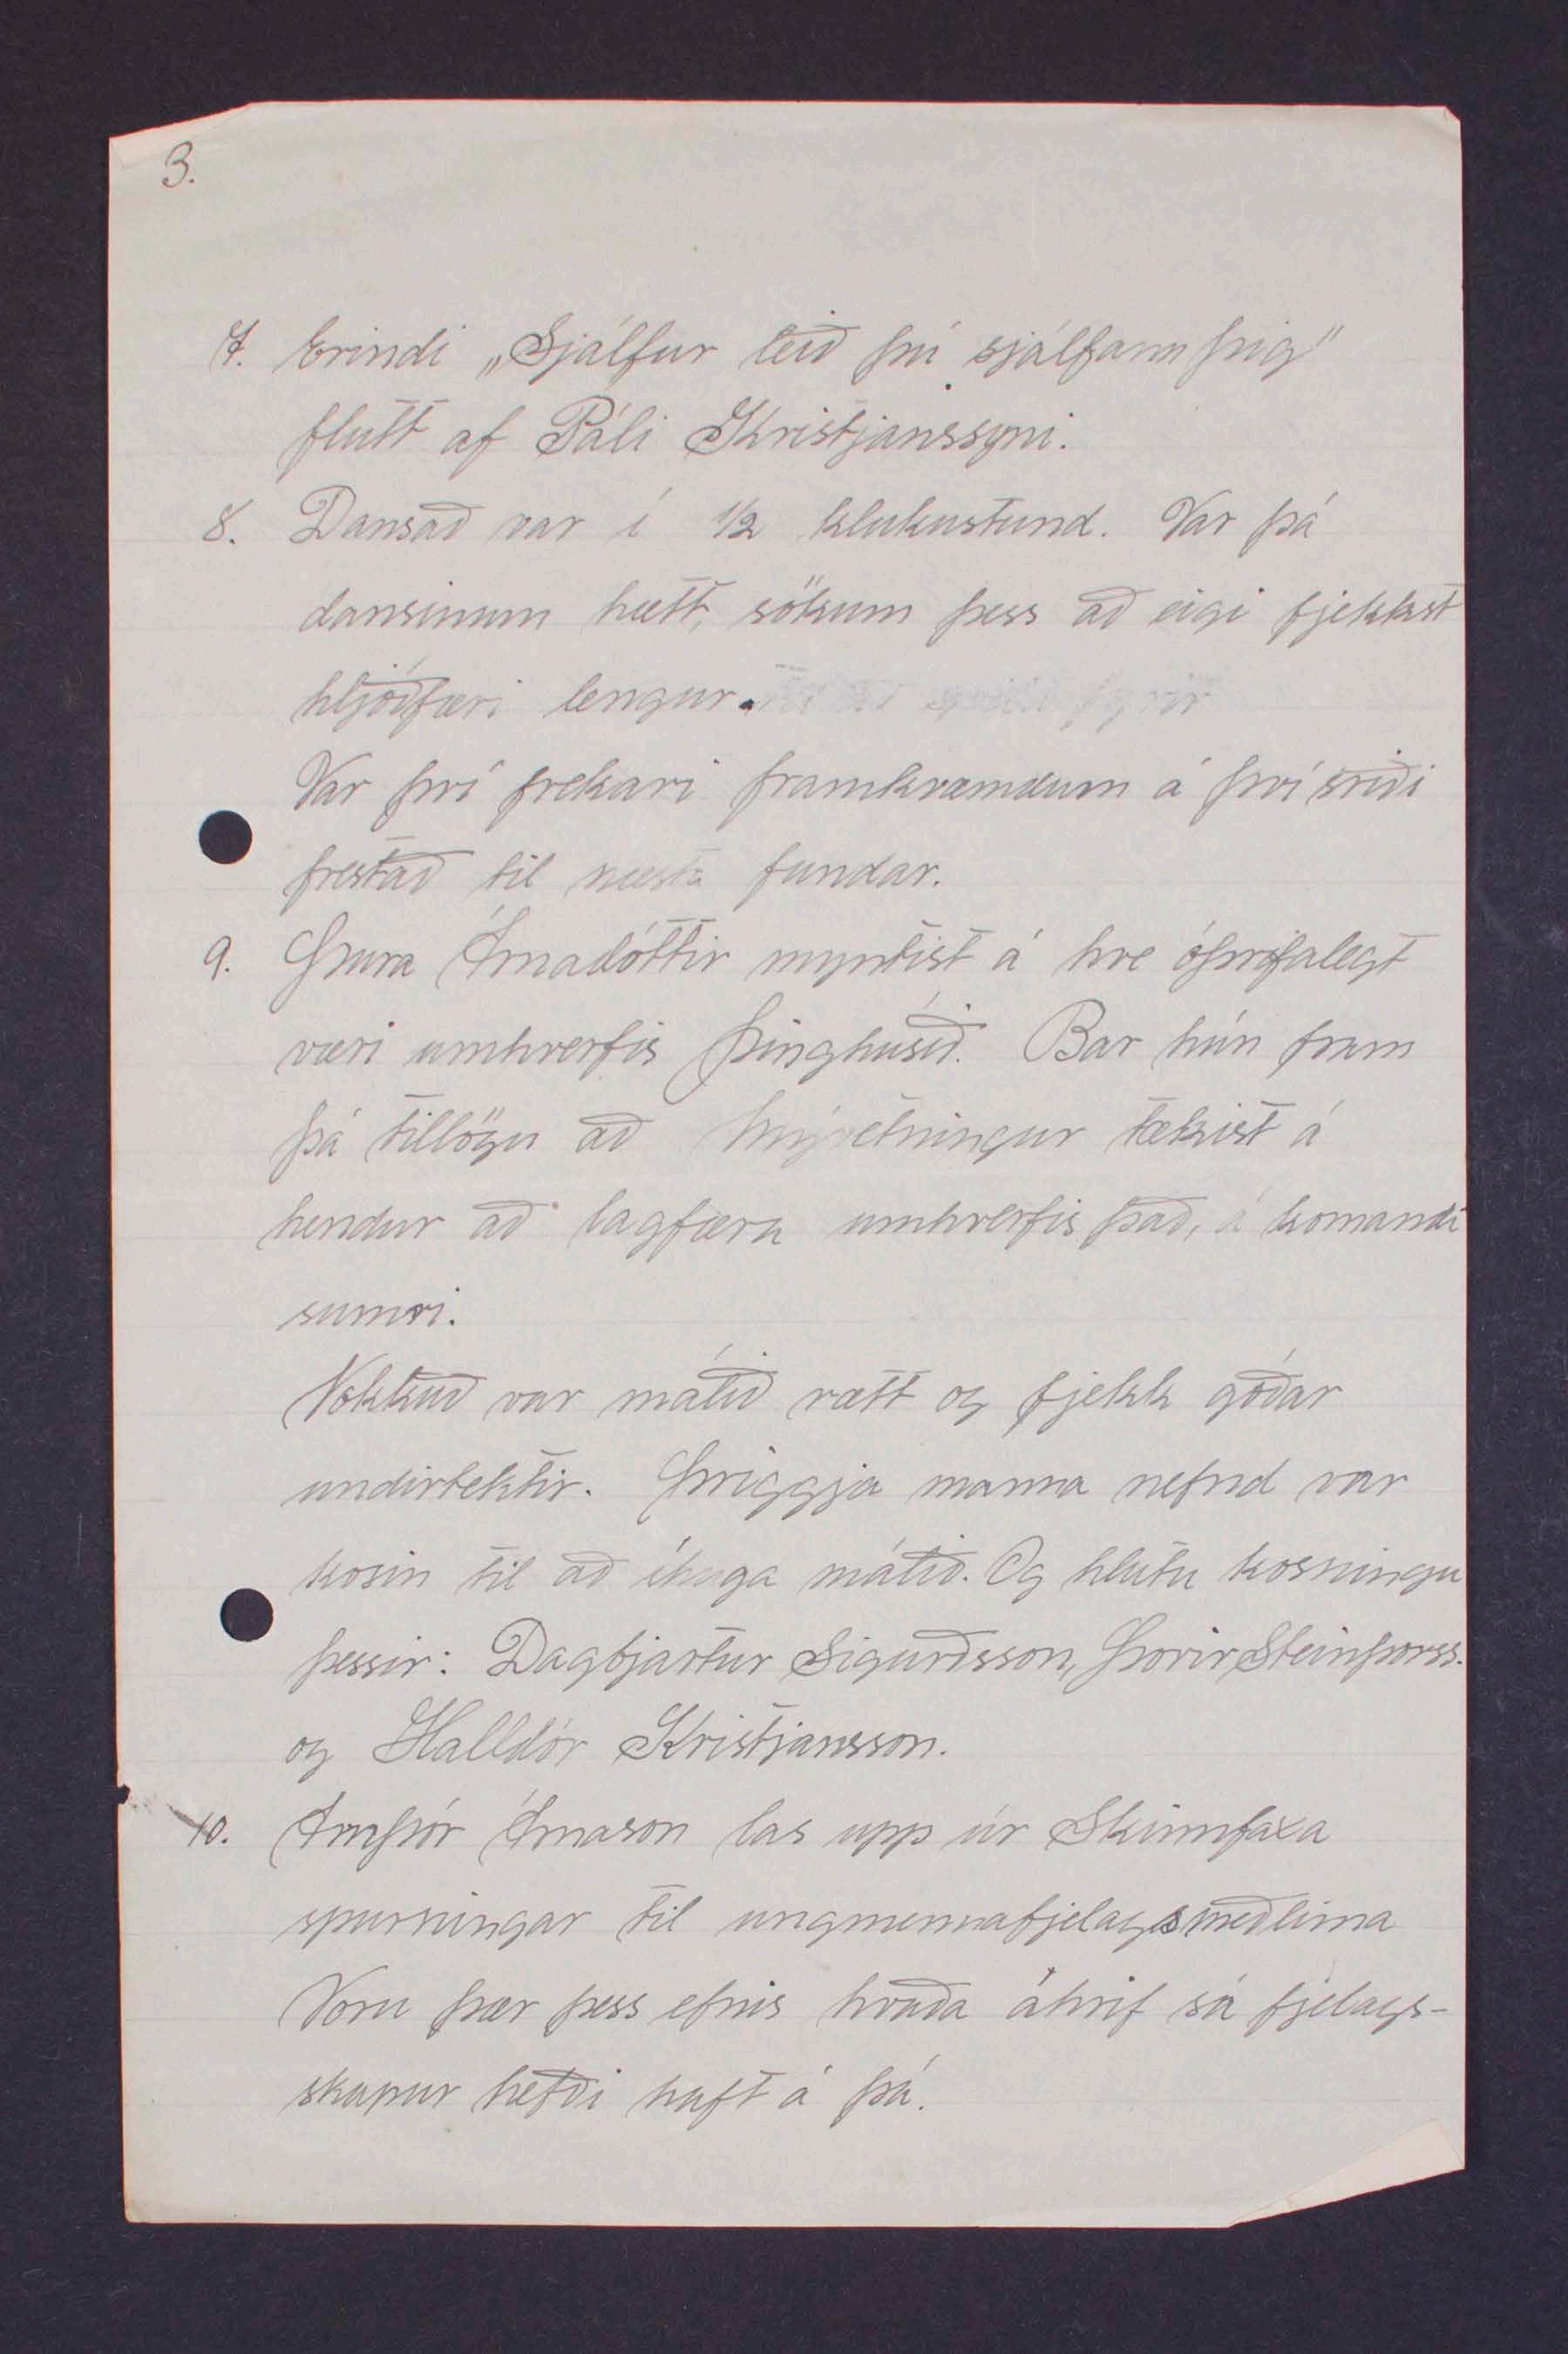 3.
7. Erindi „Sjálfur leið þú sjálfann þig"
flutt af Páli Kristjánssyni.
8. Dansað var í 1/2 klukustund. Var þá
dansinum hætt, sökum þess að eigi fjekkst
hljóðfæri lengur.
Var því frekari framkvæmdum á því sviði
frestað til næsta fundar.
9. Þura Árnadóttir myntist á hve óþrifalegt
væri umhverfis þinghúsið. Bar hún fram
þá tillögu að Mývetningur tækist á
hendur að lagfæra umhverfis það, á komandi
sumri.
Nokkuð var málið rætt og fjekk góðar
undirtektir. Þriggja manna nefnd var
kosin til að íhuga málið. Og hlutu kosningu
þessir: Dagbjartur Sigurðsson, Þórir Steinþorss.
og Halldór Kristjansson.
10. Arnþór Árnason las upp úr Skinnfaxa
spurningar til ungmennafjelagsmeðlima
Voru þær þess efnis hvaða áhrif sá fjelags-
skapur hefði haft á þá.